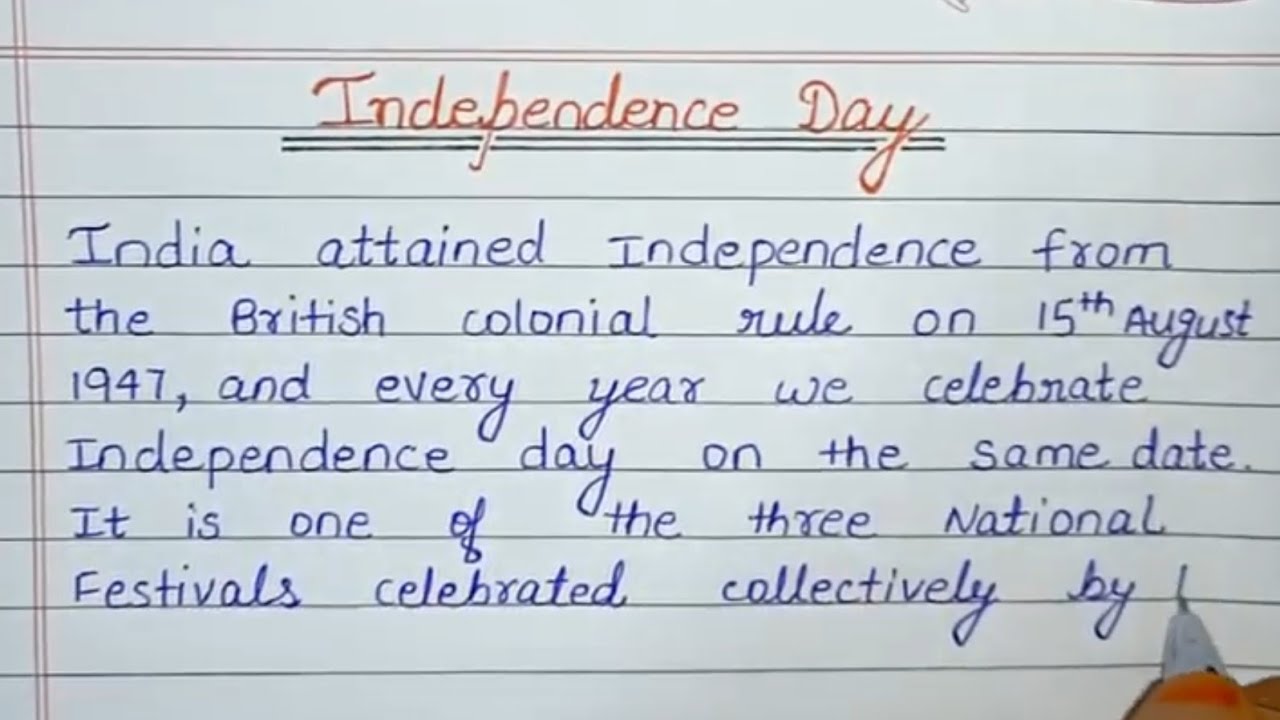 Independence Day
India attained Independence from
the British colonial rule on 15th August
1947, and every year we celebrate
Independence day on the same date.
It is one of the three National
Festivals celebrated collectively by